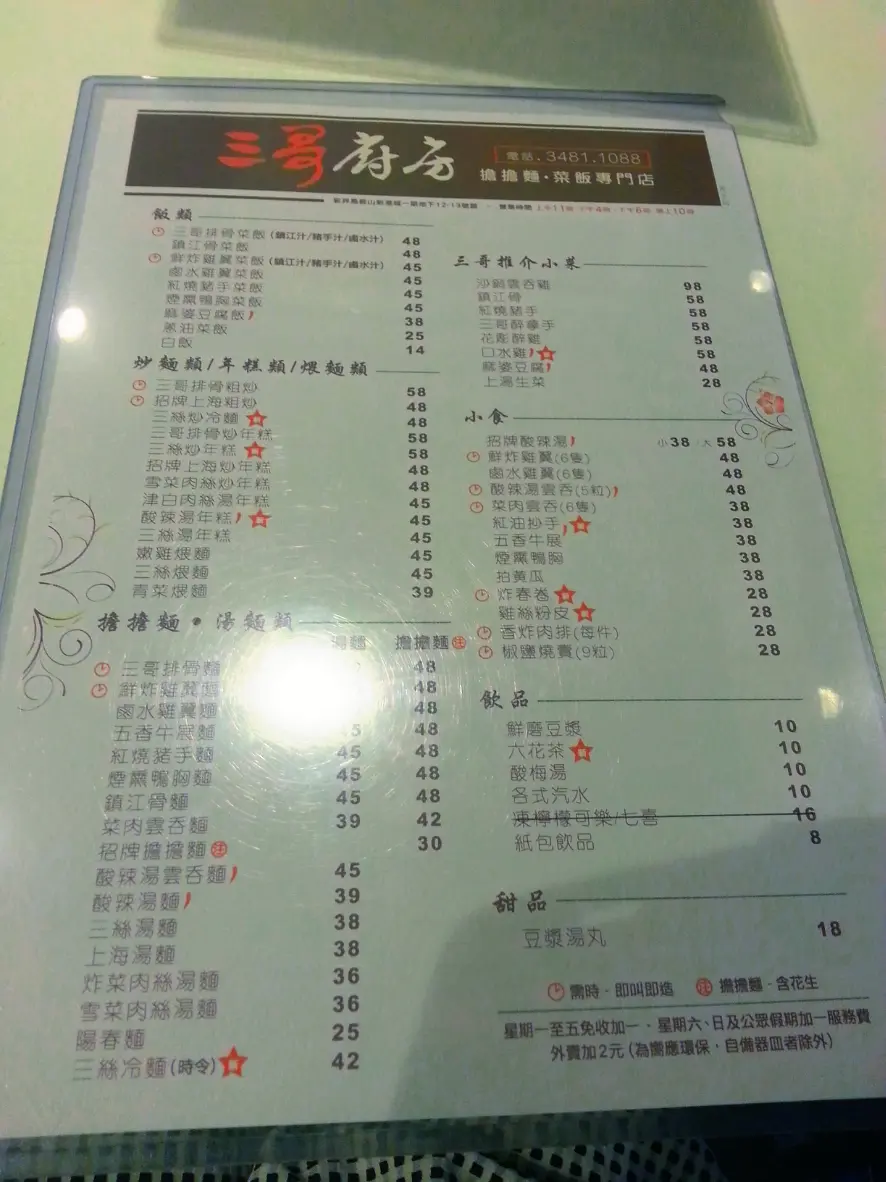 三哥廚房
電話.3481.1088
擔擔麵·菜飯專門店
飯類
三哥排骨菜飯(鎮江汁/豬手汁/鹵水汁) 48
鎮江骨菜飯 48
鮮炸雞翼菜飯(鎮江汁/豬手汁/鹵水汁) 45
鹵水雞翼菜飯 45
紅燒豬手菜飯 45
煙燻鴨胸菜飯 45
麻婆豆腐飯 38
蔥油菜飯 25
白飯 14
炒麵類/年糕類/煨麵類
三哥排骨粗炒 58
招牌上海粗炒 48
三絲炒冷麵 48
三哥排骨炒年糕 58
三絲炒年糕 58
招牌上海炒年糕 48
雪菜肉絲炒年糕 48
津白肉絲湯年糕 45
酸辣湯年糕 45
三絲湯年糕 45
嫩雞煨麵 45
三絲煨麵 45
青菜煨麵 39
擔擔麵·湯麵類
湯麵 擔擔麵 註
三哥排骨麵 48
鮮炸雞翼麵 48
鹵水雞翼麵 48
五香牛展麵 48
紅燒豬手麵 45 48
煙燻鴨胸麵 45 48
鎮江骨麵 45 48
菜肉雲吞麵 39 42
招牌擔擔麵 註 30
酸辣湯雲吞麵 45
酸辣湯麵 39
三絲湯麵 38
上海湯麵 38
炸菜肉絲湯麵 36
雪菜肉絲湯麵 36
陽春麵 25
三絲冷麵(時令) 42
三哥推介小菜
沙鍋雲吞雞 98
鎮江骨 58
紅燒豬手 58
三哥醉豬手 58
花彫醉雞 58
口水雞 58
麻婆豆腐 48
上湯生菜 28
小食
招牌酸辣湯 小38 大58
鮮炸雞翼(6隻) 48
鹵水雞翼(6隻) 48
酸辣湯雲吞(5粒) 48
菜肉雲吞(6隻) 38
紅油抄手 38
五香牛展 38
煙燻鴨胸 38
拍黃瓜 38
炸春卷 28
雞絲粉皮 28
香炸肉排(每件) 28
椒鹽燒賣(9粒) 28
飲品
鮮磨豆漿 10
六花茶 10
酸梅湯 10
各式汽水 10
凍檸檬可樂/七喜 16
紙包飲品 8
甜品
豆漿湯丸 18
需時-即叫即造 註 擔擔麵-含花生
星期一至五免收加一、星期六、日及公眾假期加一服務費
外賣加2元(為響應環保，自備器皿者除外)